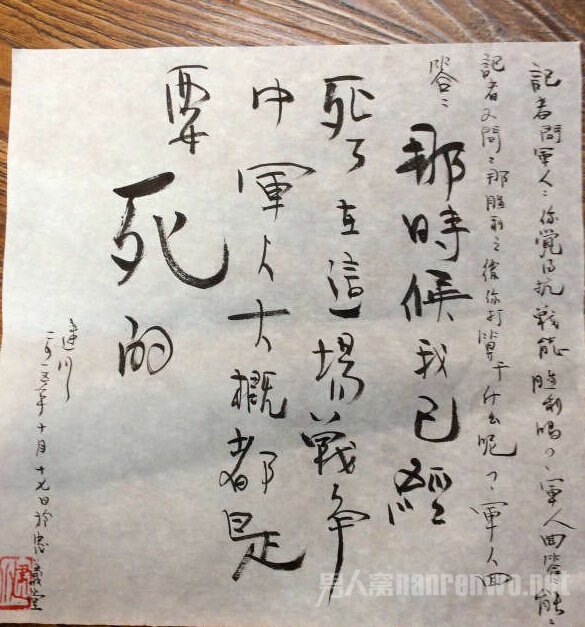 記者問軍人:你覺得抗戰能胜利嗎?軍人回答:能:
記者又問:那胜利之後你打算干什么呢?軍人回
答:那時候我已經
死了在這場戰争
中軍人大概都是
要死的
二〇一五年十月十七日於忠義堂
男人窝nanrenwo.net